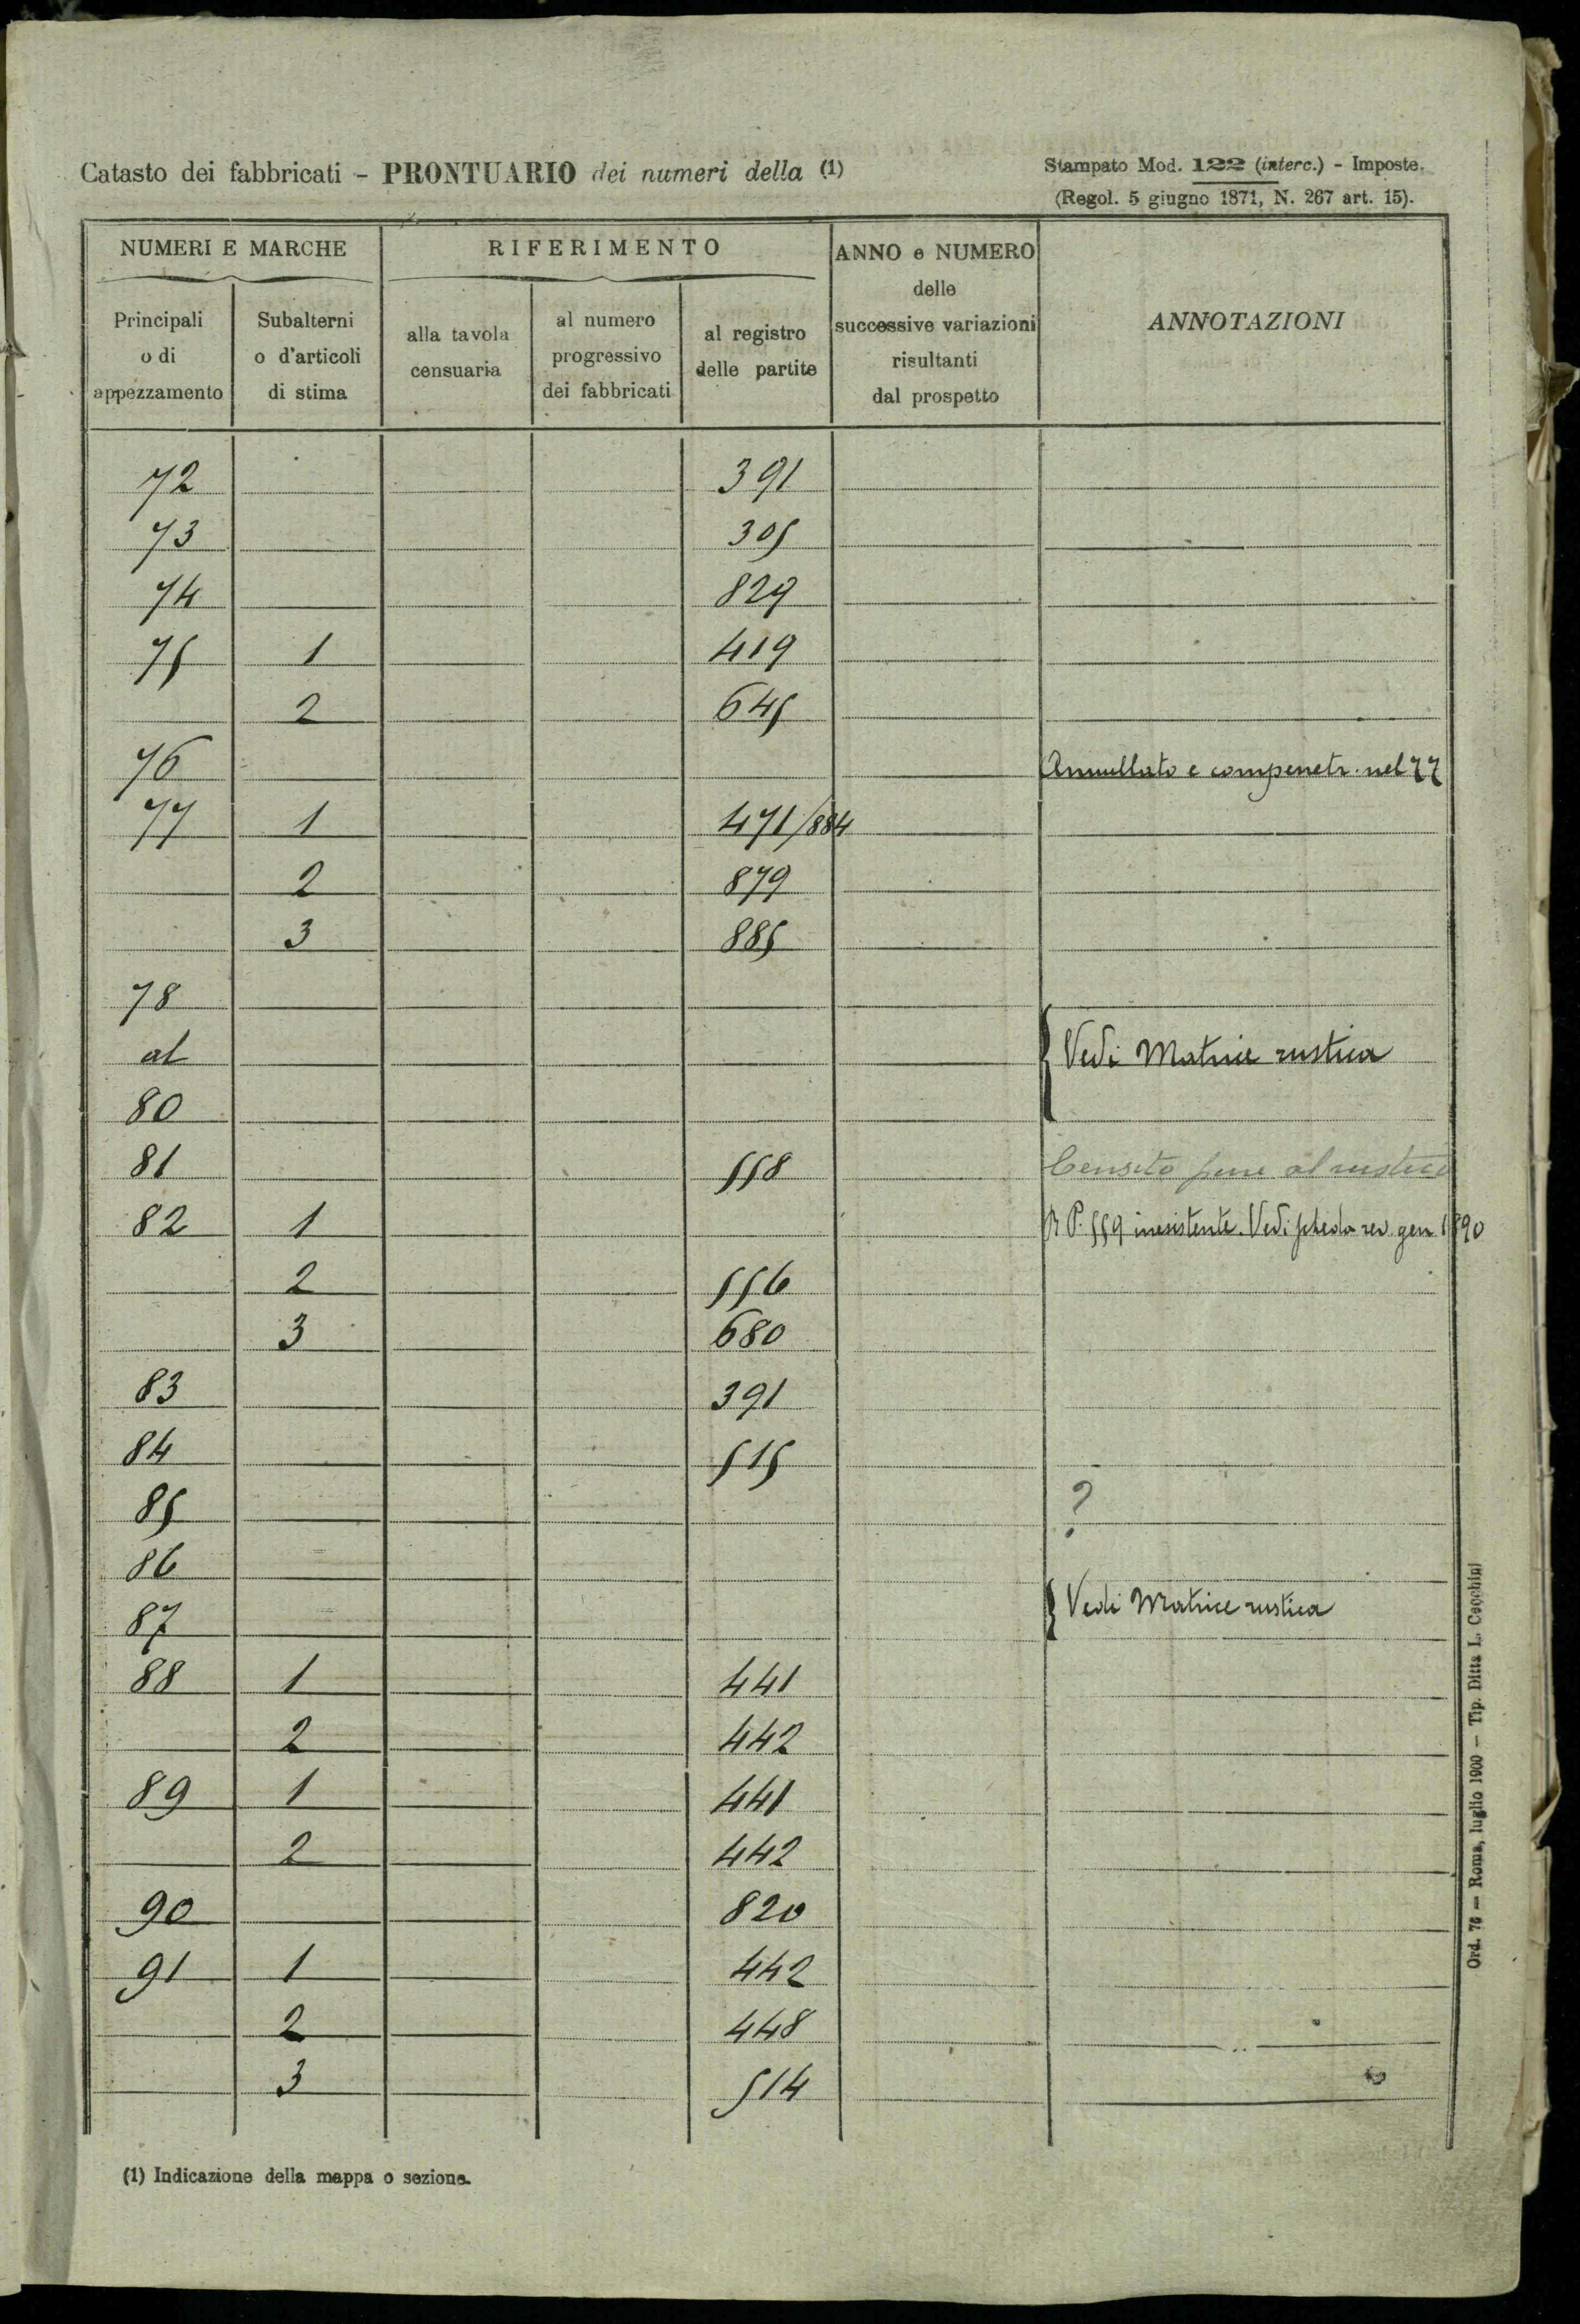 Catasto dei fabbricati - PRONTUARIO dei numeri della (1)
Stampato Mod. 122 (interc.) - Imposte.
(Regol. 5 giugno 1871, N. 267 art. 15).
NUMERI E MARCHE
RIFERIMENTO
ANNO e NUMERO
delle
successive variazioni
risultanti
dal prospetto
ANNOTAZIONI
Principali
o di
appezzamento
Subalterni
o d'articoli
di stima
alla tavola
censuaria
al numero
progressivo
dei fabbricati
al registro
delle partite
72 391
73 305
74 829
75 1 419
2 645
76 Annullato e compenetr. nel 77
77 1 471/884
2 879
3 885
78
al Vedi Matrice rustica
80
81 558 Censito pure al rustico
82 1 R P. 559 inesistente. Vedi scheda rev. gen 1890
2 556
3 680
83 391
84 515
85 ?
86
87 Vedi Matrice rustica
88 1 441
2 442
89 1 441
2 442
90 820
91 1 442
2 448
3 514
(1) Indicazione della mappa o sezione.
Ord. 76 — Roma, luglio 1900 — Tip. Ditta L. Cecchini